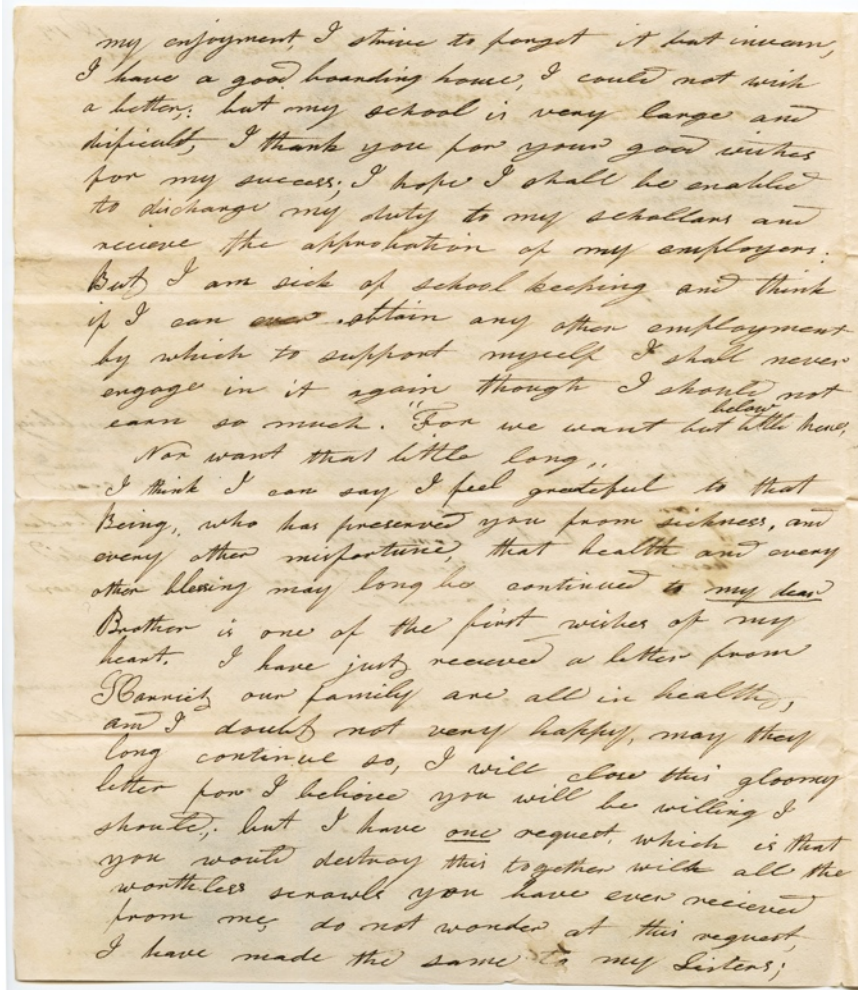 my enjoyment, I strive to forget it but invain,
I have a good boarding house, I could not wish
a better; but my school is very large and
dificult, I thank you for your good wishes
for my success; I hope I shall be enabled
to discharge my duty to my schollars and
recieve the approbation of my employers.
But I am sick of school keeping and think
if I can ever obtain any other employment
by which to support myself I shall never
engage in it again though I should not
earn so much. "For we want but little here,
below
Nor want that little long,,
I think I can say I feel grateful to that
Being, who has preserved you from sickness, and
every other misfortune, that health and every
other blessing may long be continued to my dear
Brother is one of the first wishes of my
heart. I have just recieved a letter from
Harriet our family are all in health,
and I doubt not very happy, may they
long continue so, I will close this gloomy
letter for I believe you will be willing I
should; but I have one request, which is that
you would destroy this together with all the
worthless scrawls you have ever recieved
from me, do not wonder at this request,
I have made the same to my Sisters;